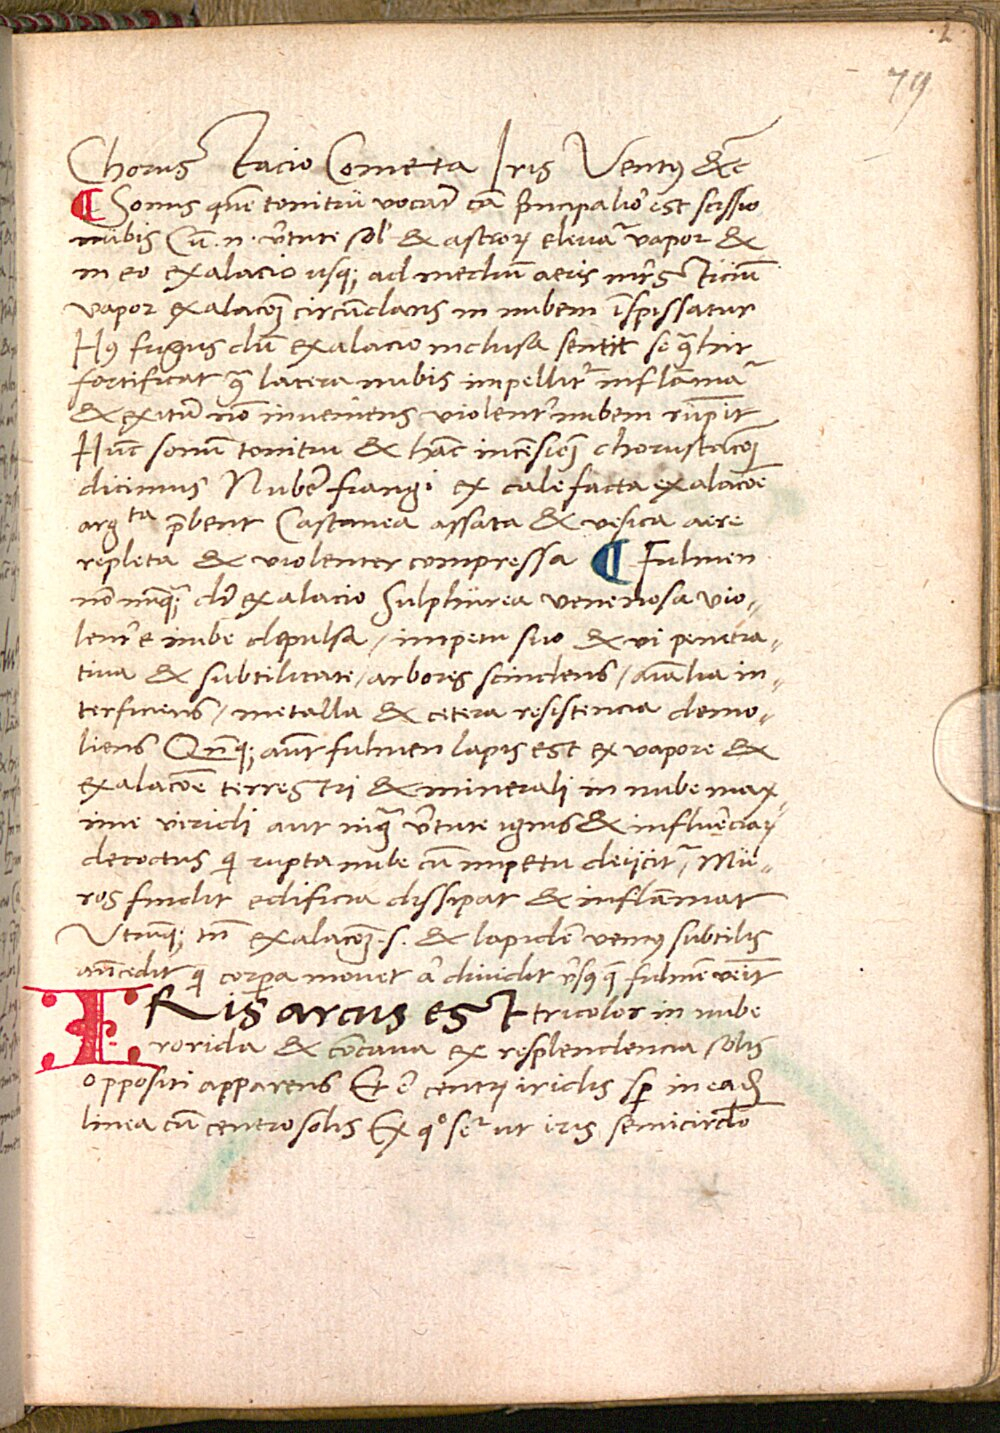 79
Chorus Tacio Cometa Iris Ventꝯ &c
¶ Sonus quē tonitru vocāt cā prīcipalior est scissio
nubis Cū .n. v̄tute sol' & astrorꝝ elevat̃ vapor &
in eo exalacio usqꝫ ad mediū aeris
vapor exalacōꝫ circūdans in nubem īspissatur
Hꝯ frigus dū exalacio inclusa sentit se q̄ hir
fortificat q̄ latera nubis impellit̃ inflāma˜
& exitū nō inveniens violent̃ nubem rūpit
Hūc sonū tonitru & hāc incēsioꝫ chorustacōꝫ
dicimus Nubē frangi ex calefacta exalacōe
argᵗᵃ p̄bent Castanea assata & vesica aere
repleta & violenter compressa ¶ Fulmen
nō nūqꝫ dr̄ exalacio Sulphurea venenosa vio„
lent̃ e nube depulsa / impetu suo & vi penetra„
tiva & subtilitate / arbores scindens / aīalia in„
terficiens / metalla & cetera resistencia demo„
liens Qn̄qꝫ aut̃ fulmen lapis est ex vapore &
exalacōe terrestri & minerali in nube max„
ime viridi aut nigᵃ v̄tute ignis & influēciaꝝ
decoctus qͥ rupta nube cū impetu deijcit̃ / Mu„
ros findit edificia dissipat & inflāmat
Utrūqꝫ tn̄ exalacōꝫ .s. & lapidē ventꝯ subtilis
an̄cedit qͥ corpora movet a͞ dividit p̄usqᵃ fulmē veīt
IRis arcus esT tricolor in nube
rorida & cōcava ex resplendencia solis
oppositi apparens Et ē centrꝫ iridis sꝑ in eadꝫ
linea cū centro solis Ex qᵒ seqr̃ ut iris semicirclo